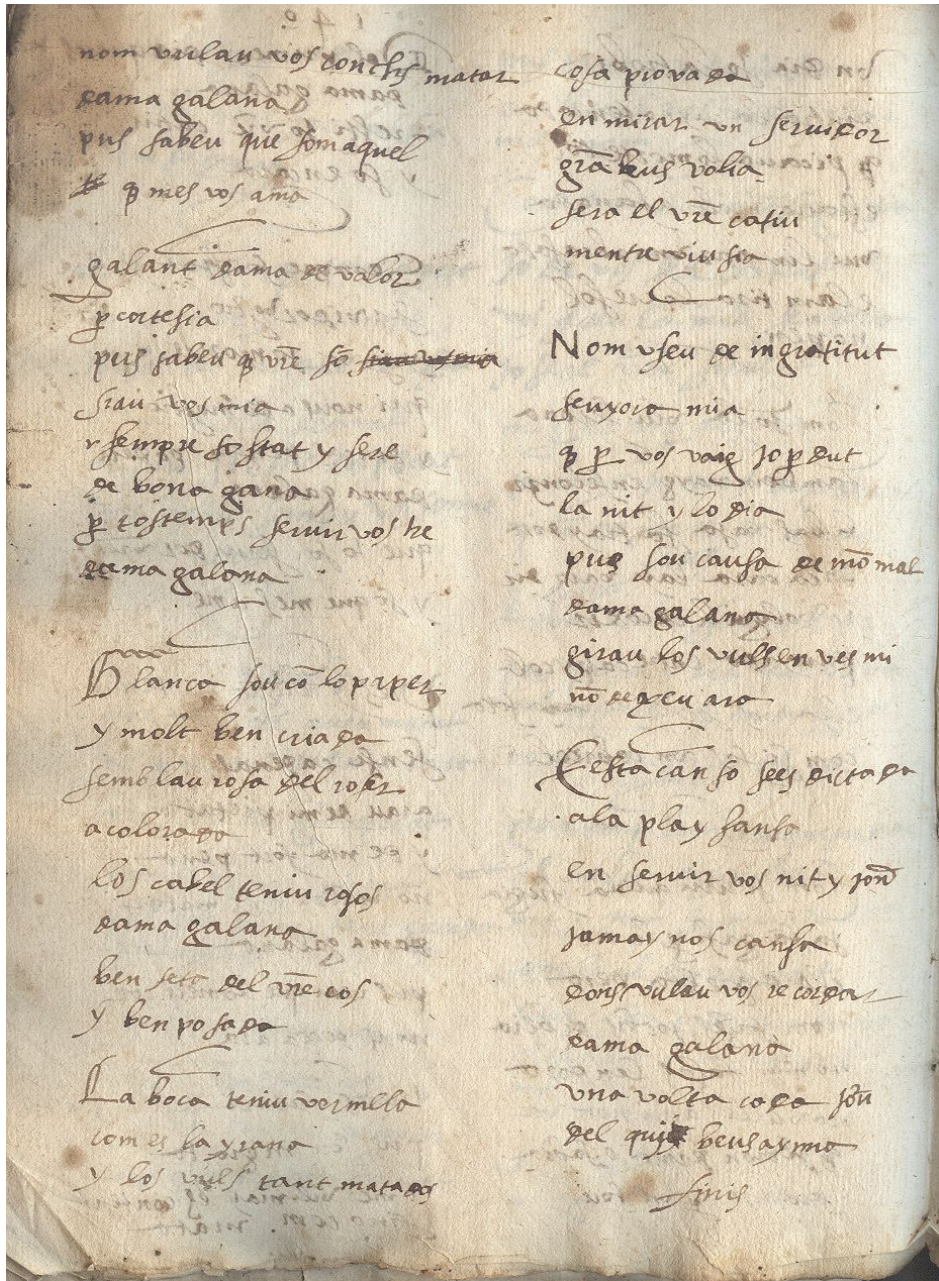 nom vulau vos conchs matar
dama galana
pus sabeu que som aquel
q mes vos ama
galant dama de valor
p cortesia
pus sabeu q vre so
siau vos mia
y sempre so stat y sere
de bona gana
p tostemps servir vos he
dama galana
Blanca sou co lo paper
y molt ben criada
semblau rosa del roser
acolorada
los cabel teniu rosos
dama galana
ben feta del vre cos
y ben posada
La boca teniu vermella
com es la grana
y los vuls tant matados
cosa provada
en mirar un servidor
gra be us volia
sera el vre catiu
mentre viu sia
Nom useu de ingratitut
senyora mia
q p vos vaig jo pdut
la nit y lo dia
pus sou causa de mo mal
dama galana
girau los vulls en ves mi
no dexeu ara
Esta canso sees dictada
a la play sansa
en servir vos nit y jorn
jamay nos cansa
dons vulau vos recordar
dama galana
una volta cada jorn
del qui beus ayma
finis